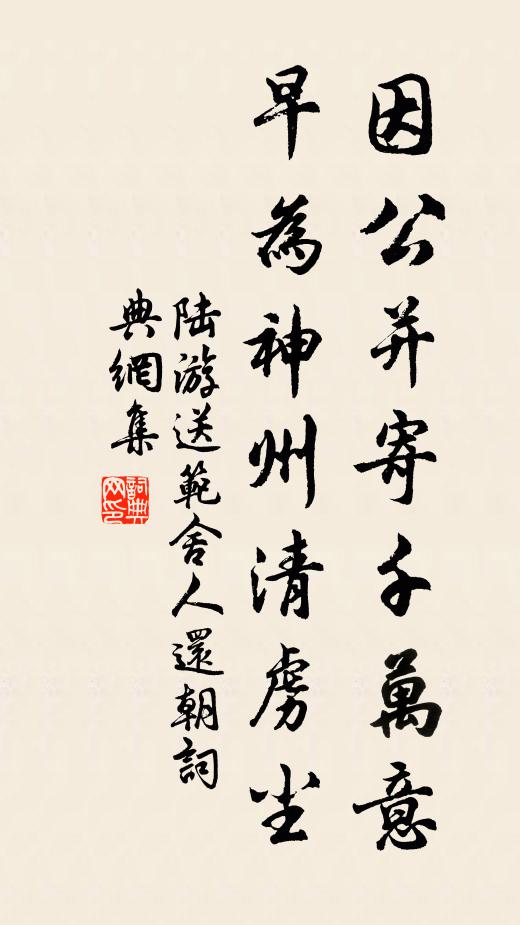 因公并寄千萬意
早為神州清虜尘
陸游送範舍人還朝詞
典網集
詞典
网印